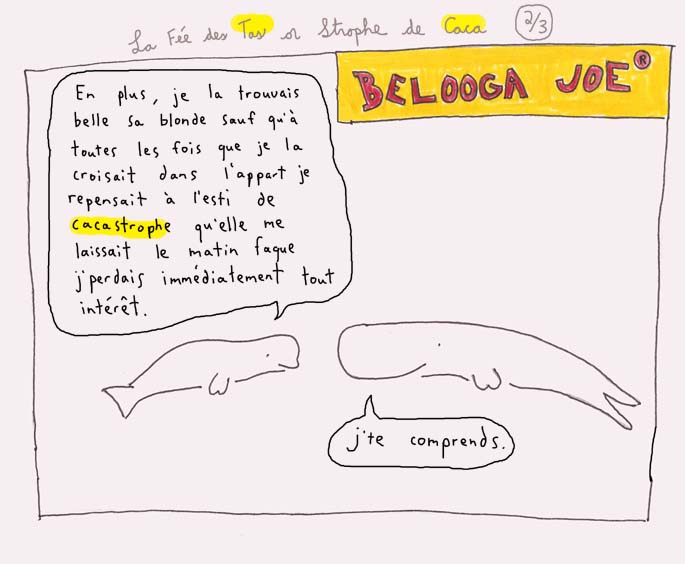 La Fée des Tas or Strophe de Caca 2/3
BELOOGA JOE®
En plus, je la trouvais
belle sa blonde sauf qu'à
toutes les fois que je la
croisait dans l'appart je
repensait à l'esti de
cacastrophe qu'elle me
laissait le matin faque
j'perdais immédiatement tout
intérêt.
j'te comprends.